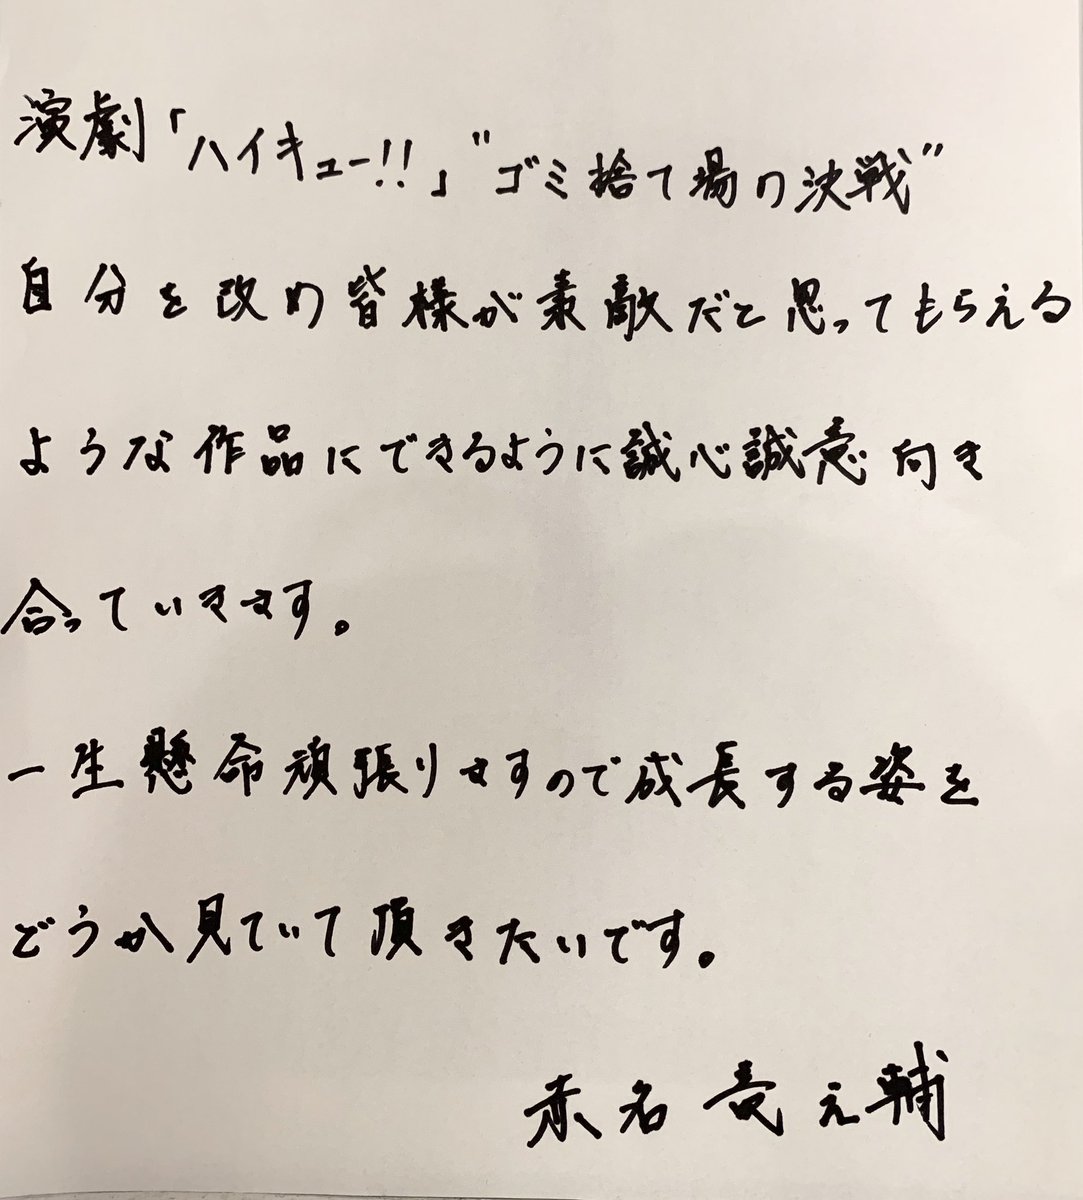 演劇「ハイキュー!!」"ゴミ捨て場の決戦"
自分を改め皆様が素敵だと思ってもらえる
ような作品にできるように誠心誠意向き
合っていきます。
一生懸命頑張りますので成長する姿を
どうか見ていて頂きたいです。
赤名竜之輔